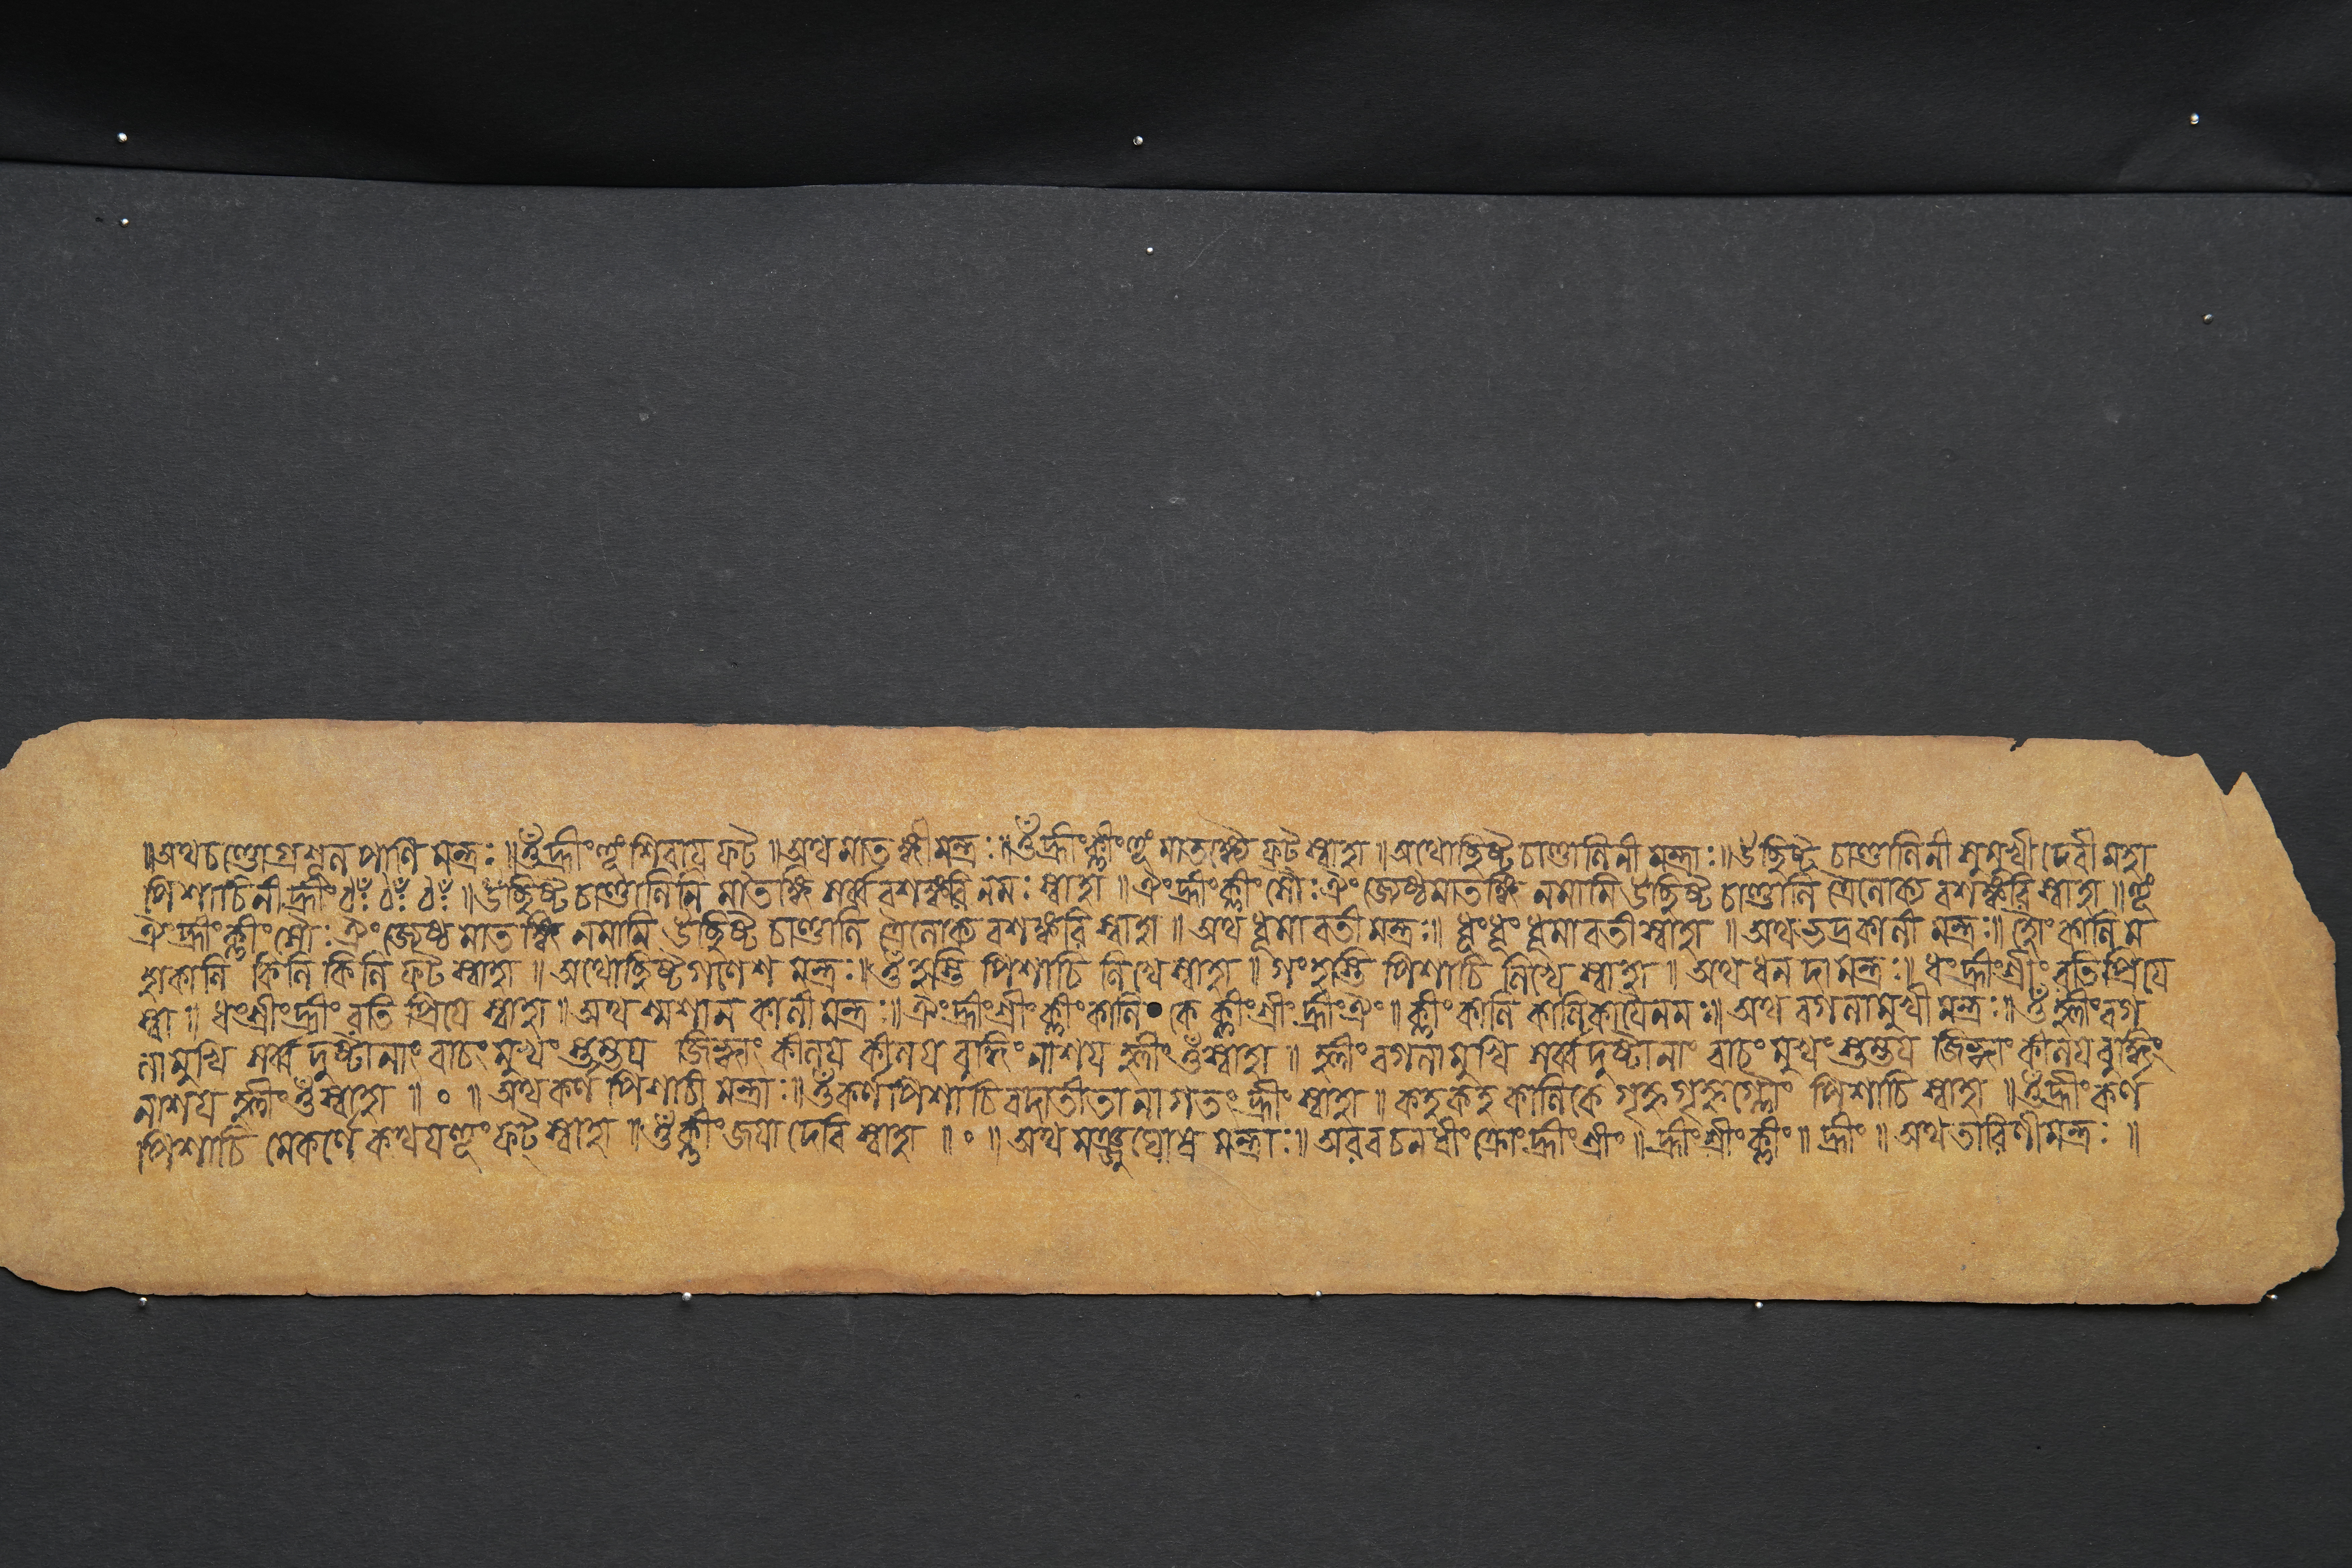 ॥অথ চণ্ডোগ্রশূলপাণি মন্ত্রঃ॥ওঁ হ্রীং হূঁ শিবায ফট॥অথ মাতঙ্গী মন্ত্রঃ॥ওঁ হ্রীং ক্লীং হূঁ মাতঙ্গ্যৈ ফট স্বাহা॥অথোচ্ছিষ্ট চাণ্ডালিনী মন্ত্রাঃ॥উচ্ছিষ্ট চাণ্ডালিনী সুমুখী দেবী মহা
পিশাচিনী হ্রীং ঠঃ ঠঃ ঠঃ॥উচ্ছিষ্ট চাণ্ডালিনি মাতঙ্গি সর্ব্ববশঙ্করি নমঃ স্বাহা॥ঐং হ্রীং ক্লীং সৌঃ ঐং জ্যেষ্ঠমাতঙ্গি নমামি উচ্ছিষ্ট চাণ্ডালি ত্রৈলোক্য বশঙ্করি স্বাহা॥হূঁ
ঐং হ্রীং ক্লীং সৌঃ ঐং জ্যেষ্ঠ মাতঙ্গি নমামি উচ্ছিষ্ট চাণ্ডালি ত্রৈলোক্য বশঙ্করি স্বাহা॥অথ ধূমাবতী মন্ত্রঃ॥ধূং ধূং ধূমাবতী স্বাহা॥অথ ভদ্রকালী মন্ত্রঃ॥হোং কালি ম
হাকালি কিলি কিলি ফট স্বাহা॥অথোচ্ছিষ্ট গণেশ মন্ত্রঃ॥ওঁ হস্তি পিশাচি লিখে স্বাহা॥গং হস্তি পিশাচি লিখে স্বাহা॥অথ ধনদা মন্ত্রঃ॥ধং হ্রীং শ্রীং ৰতিপ্রিযে
স্বা॥ধং শ্রীং হ্রীং ৰতি প্রিযে স্বাহা॥অথ শ্মশান কালী মন্ত্রঃ॥ঐং হ্রীং শ্রীং ক্লীং কালি কে ক্লীং শ্রীং হ্রীং ঐং॥ক্লীং কালি কালিকাযৈ নমঃ॥অথ বগলামুখী মন্ত্রঃ॥ওঁ হ্লীং বগ
লামুখি সর্ব্ব দুষ্টানাং বাচং মুখং স্তম্ভয জিহ্বাং কীলয কীলয বুদ্ধিং নাশয হ্লীং ওঁ স্বাহা॥হ্লীং বগলামুখি সর্ব্বদুষ্টানাং বাচং মুখং স্তম্ভয জিহ্বাং কীলয বুদ্ধিং
নাশয হ্লীং ওঁ স্বাহা॥০॥অথ কর্ণ পিশাচী মন্ত্রাঃ॥ওঁ কর্ণ পিশাচি বদাতীতা নাগতং হ্রীং স্বাহা॥কহ কহ কালিকে গৃহ্ন গৃহ্ন পিশাচি স্বাহা॥ওঁ হ্রীং কর্ণ
পিশাচি মে কর্ণে কথয হূং ফট্ স্বাহা॥ওঁ ক্লীং জযা দেবি স্বাহা॥০॥অথ মঞ্জুঘোষ মন্ত্রাঃ॥অৰবচনধীং ক্রোং হ্রীং শ্রীং॥হ্রীং শ্রীং ক্লীং॥হ্রীং॥অথ তাৰিণী মন্ত্রঃ॥